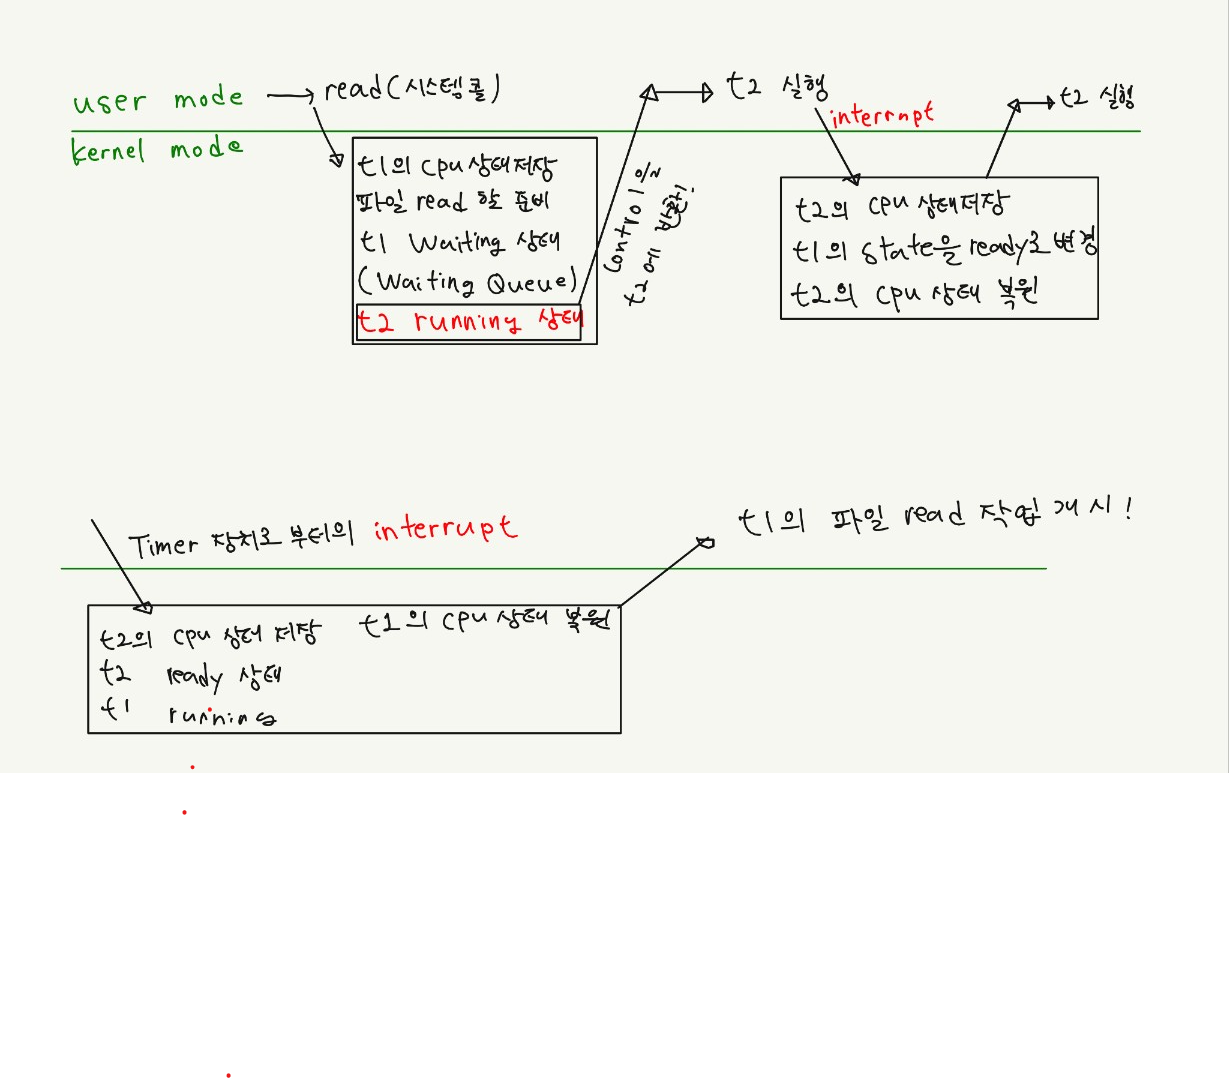 user mode → read(시스템콜)
kernel mode
t1의 cpu 상태저장
파일 read 할 준비
t1 Waiting 상태
(Waiting Queue)
t2 running 상태
Control을
t2에 반환!
t2 실행
interrupt
t2의 cpu 상태저장
t1의 state을 ready로 변경
t2의 cpu 상태 복원
t2 실행
Timer 장치로 부터의 interrupt
t2의 cpu 상태 저장
t2 ready 상태
t1 running
t1의 cpu 상태 복원
t1의 파일 read 작업 개시!